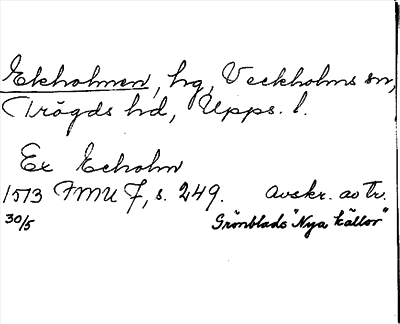 Ekholmen, hg, Veckholms sn,
Trögds hd, Upps. l.
Ex Echolm
1573 FMU 7, s. 249. Avskr. av Tr.
30/5 Grönblads "Nya källor"